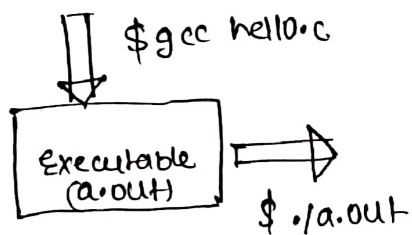 $ gcc hello.c
Executable
(a.out)
$ ./a.out